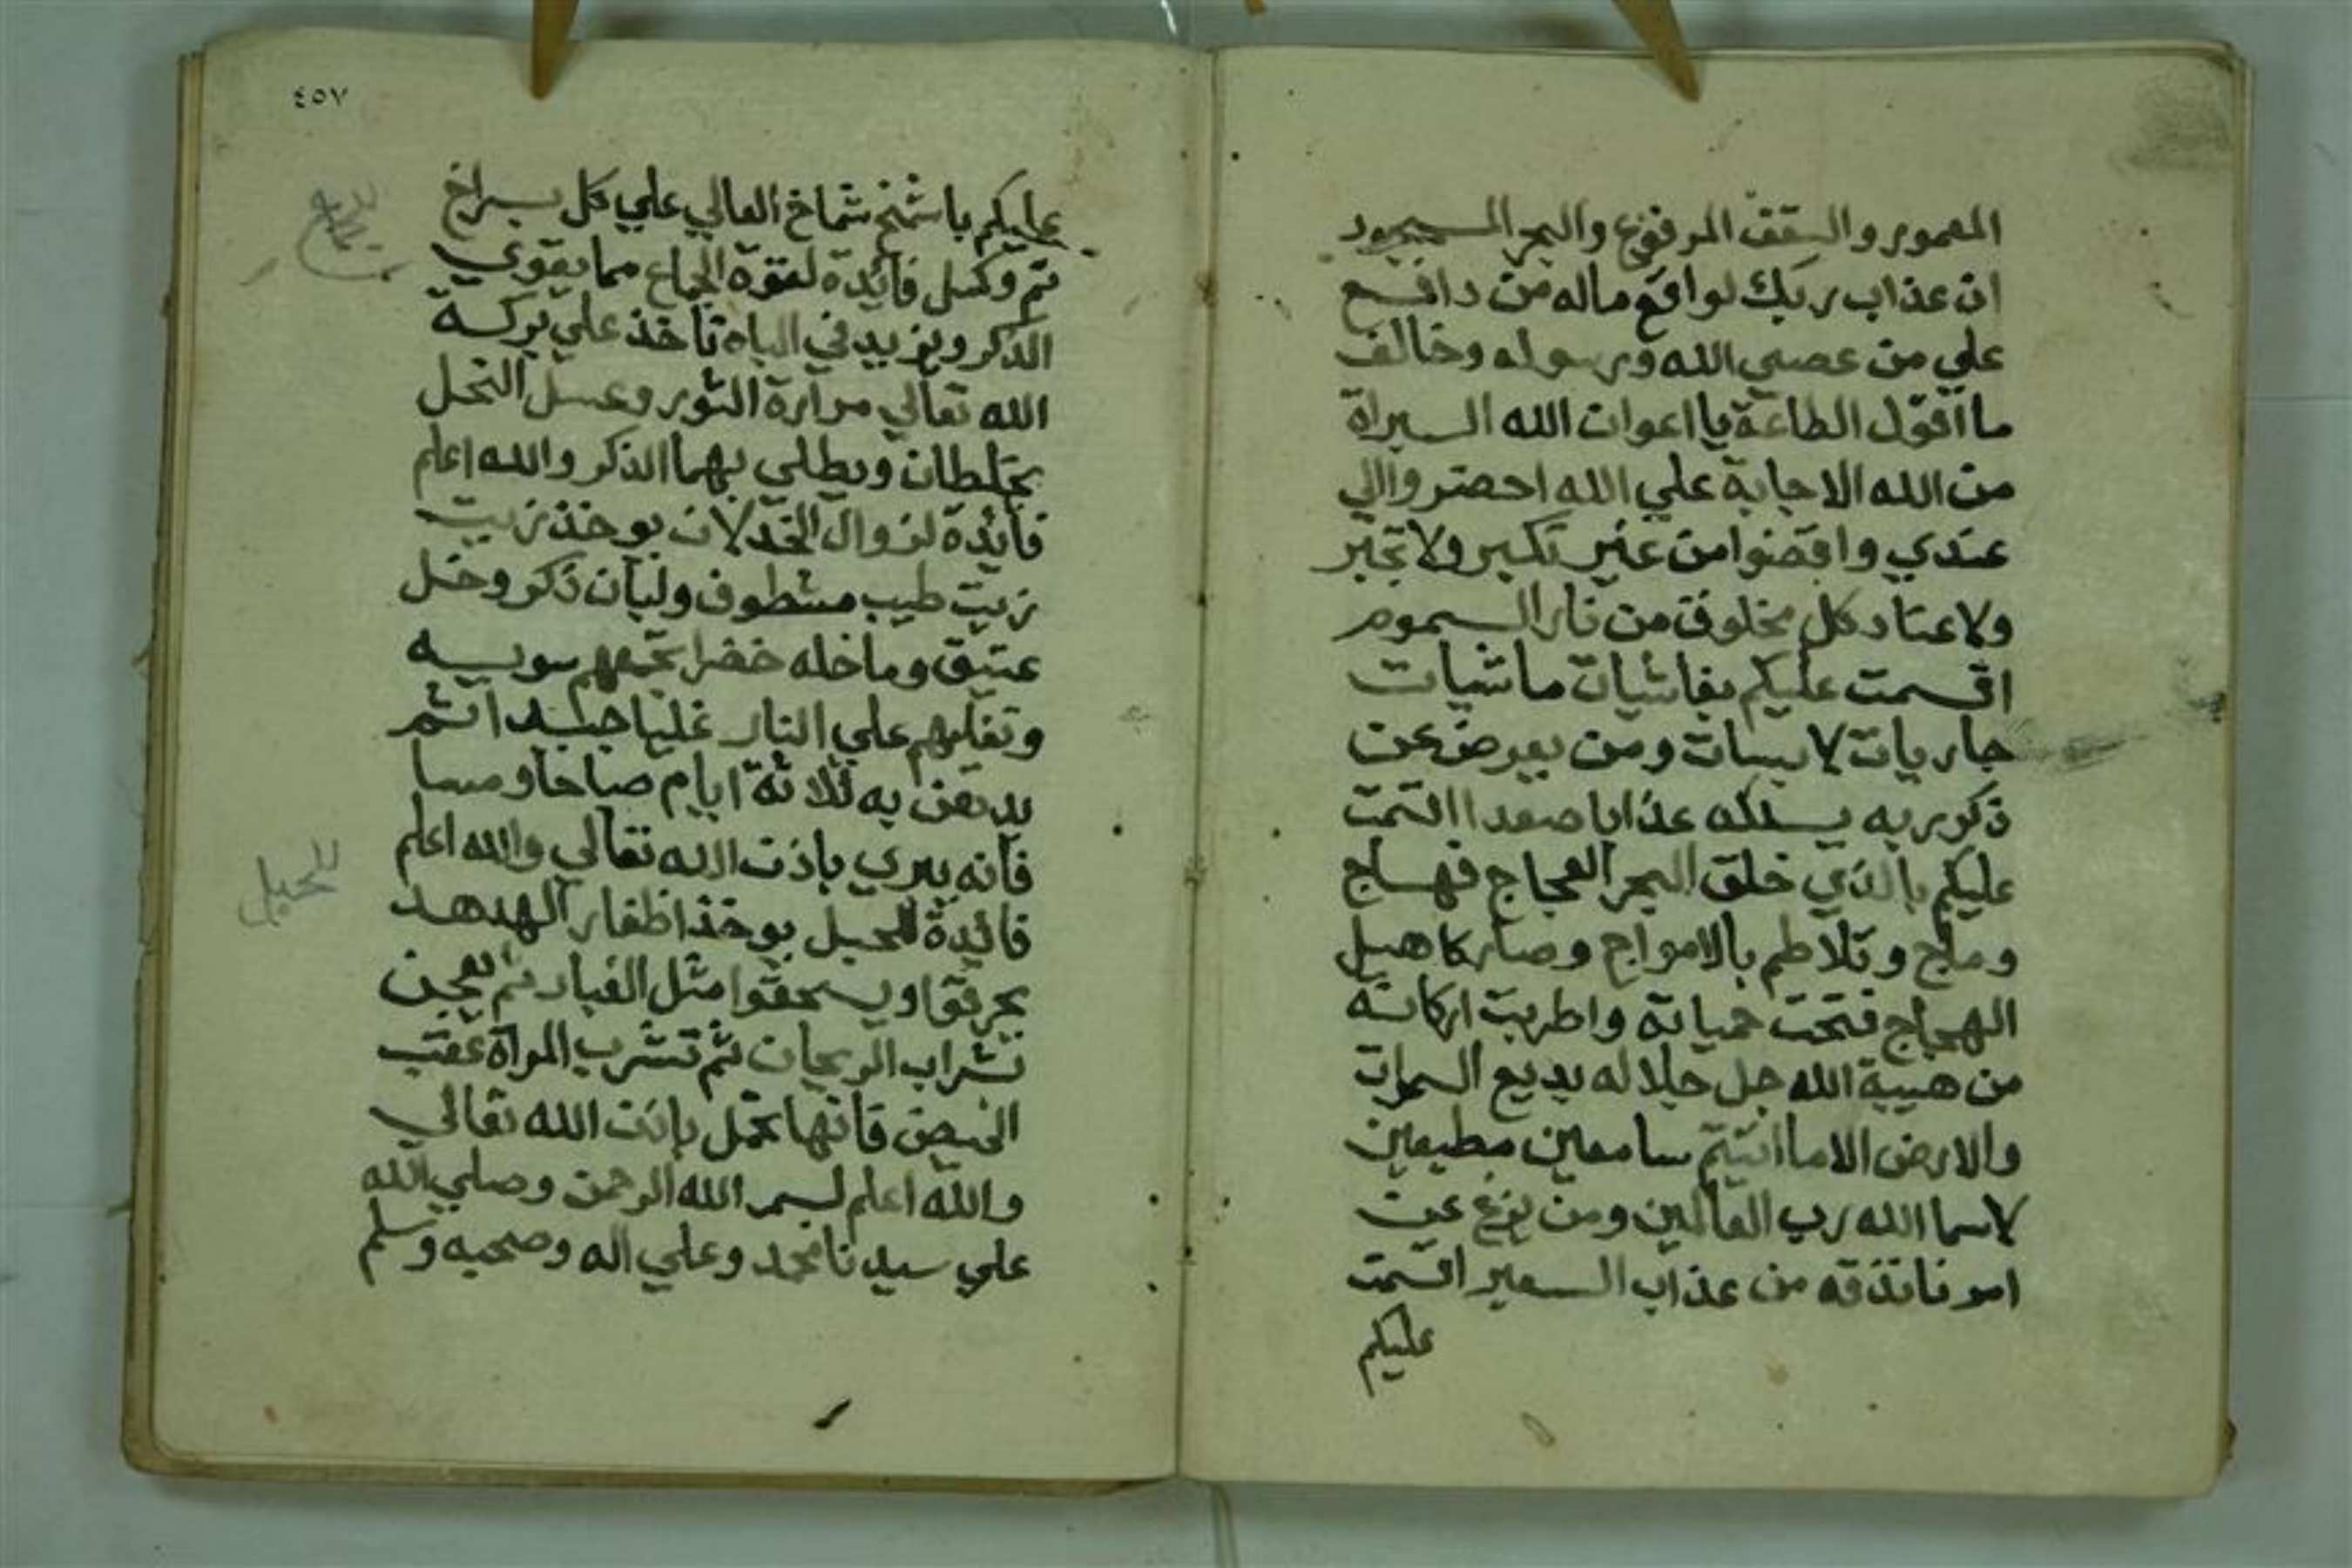 المعمور والسقف المرفوع والبحر المسجور
ان عذاب ربك لواقع ماله من دافع
علي من عصي الله ورسوله وخالف
ما اقول الطاعة يا اعوان الله السيراة
من الله الاجابة علي الله احضر والي
عندي واقضوا من غير تكبر ولا تجبر
ولا عناد كل مخلوق من نار السموم
اقسمت عليكم بفاشيات ماشيات
جاريات لابسات ومن يعرض عن
ذكر ربه يسلكه عذابا صعدا اقسمت
عليكم بالذي خلق البحر العجاج فهاج
وماج وتلاطم بالامواج وصار كاهيل
الهجاج فتحت حياته واطربت اركانه
من هيبة الله جل جلاله بديع السموات
والارض الا ما اتيتم سامعين مطيعين
لاسما الله رب العالمين ومن يزغ عن
امرنا نذقه من عذاب السعير اقسمت
عليكم
٤٥٧
عليكم باشمخ شماخ العالي علي كل براخ
تم وكمل فائدة لقوة الجماع مما يقوي
الذكر ويزيد في الباه تاخذ علي بركة
الله تعالي مرارة الثور وعسل النحل
يختلطان ويطلي بهما الذكر والله اعلم
فائدة لزوال الخدلان يوخذ زيت
زيت طيب مشطوف ولبان ذكر وخل
عتيق وماخله خضرا تجمعهم سويه
وتغليهم علي النار غليا جيدا ثم
يدهن به ثلاثة ايام صباحا ومسا
فانه يبري باذن الله تعالي والله اعلم
فائدة للحبل يوخذ اظفار الهدهد
يحرقوا ويسحقوا مثل الغبار ثم يعجن
بشراب الريحان ثم تشرب المراة عقب
الحيض فانها تحمل باذن الله تعالي
والله اعلم بسم الله الرحمن وصلي الله
علي سيدنا محمد وعلي اله وصحبه وسلم
للجماع
للحبل